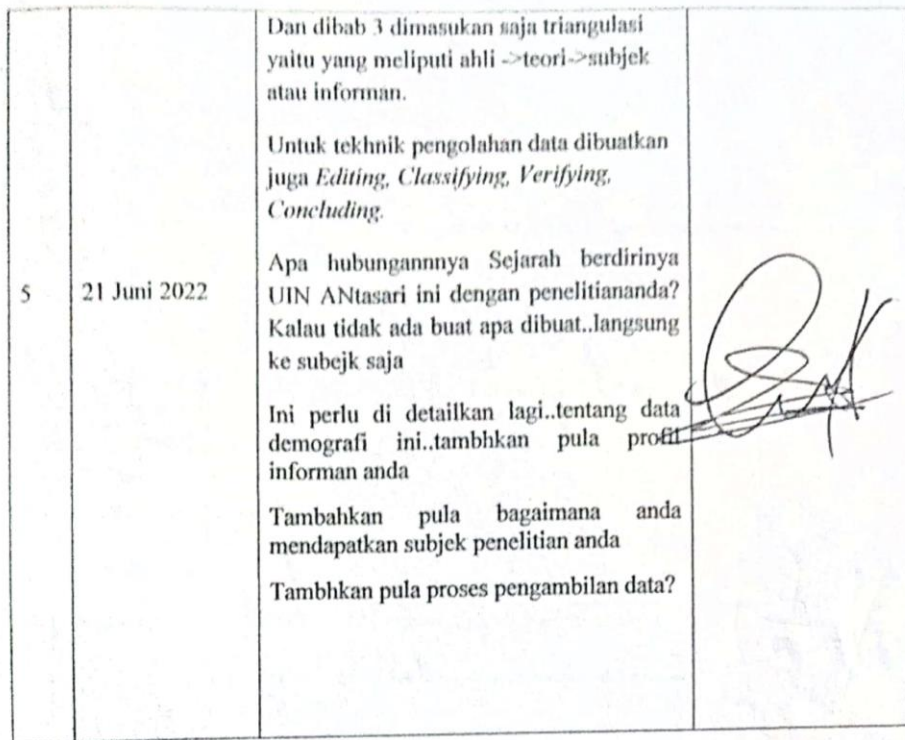 Dan dibab 3 dimasukan saja triangulasi
yaitu yang meliputi ahli ->teori->subjek
atau informan.
Untuk tekhnik pengolahan data dibuatkan
juga Editing, Classifying, Verifying,
Concluding.
5
21 Juni 2022
Apa hubungannnya Sejarah berdirinya
UIN ANtasari ini dengan penelitiananda?
Kalau tidak ada buat apa dibuat..langsung
ke subejk saja
Ini perlu di detailkan lagi..tentang data
demografi ini..tambhkan pula profil
informan anda
Tambahkan pula bagaimana anda
mendapatkan subjek penelitian anda
Tambhkan pula proses pengambilan data?